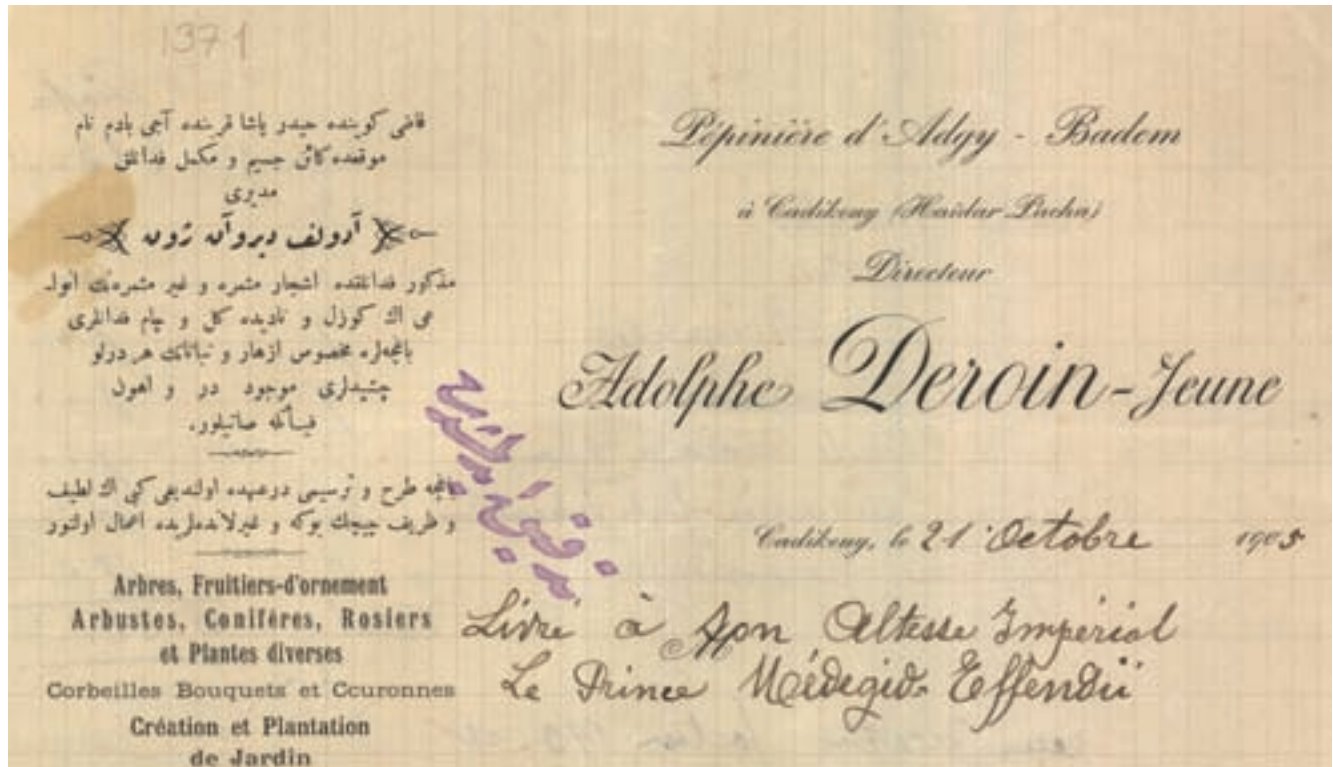 1371
قاضی کوینده حیدر پاشا قربنده آجی بادم نام
موقعده کائن جسیم و مکمل فدانلق
مدیری
آدولف دیروآن ژون
مذکور فدانلقده اشجار مثمره و غیر مثمره‌نك انوا-
عی اك کوزل و نادیده کل و چام فدانلری
باغچه‌لره مخصوص ازهار و نباتاتك هر درلو
چشیدلری موجود در و اهون
فیأتله صاتیلور.
باغچه طرح و ترسیمی درعهده اولندیغی کبی اك لطیف
و ظریف چیچك بوکه و غیرلاندهلریده اعمال اولنور
Arbres, Fruitiers-d'ornement
Arbustes, Conifères, Rosiers
et Plantes diverses
Corbeilles Bouquets et Ccuronnes
Création et Plantation
de Jardin
Pépinière d'Adgy - Badem
à Cadikeuy (Haïdar Pacha)
Directeur
Adolphe Deroin-Jeune
Cadikeuy, le 21 Octobre 1905
Livré à Son Altesse Impérial
Le Prince Médegid Effendiï